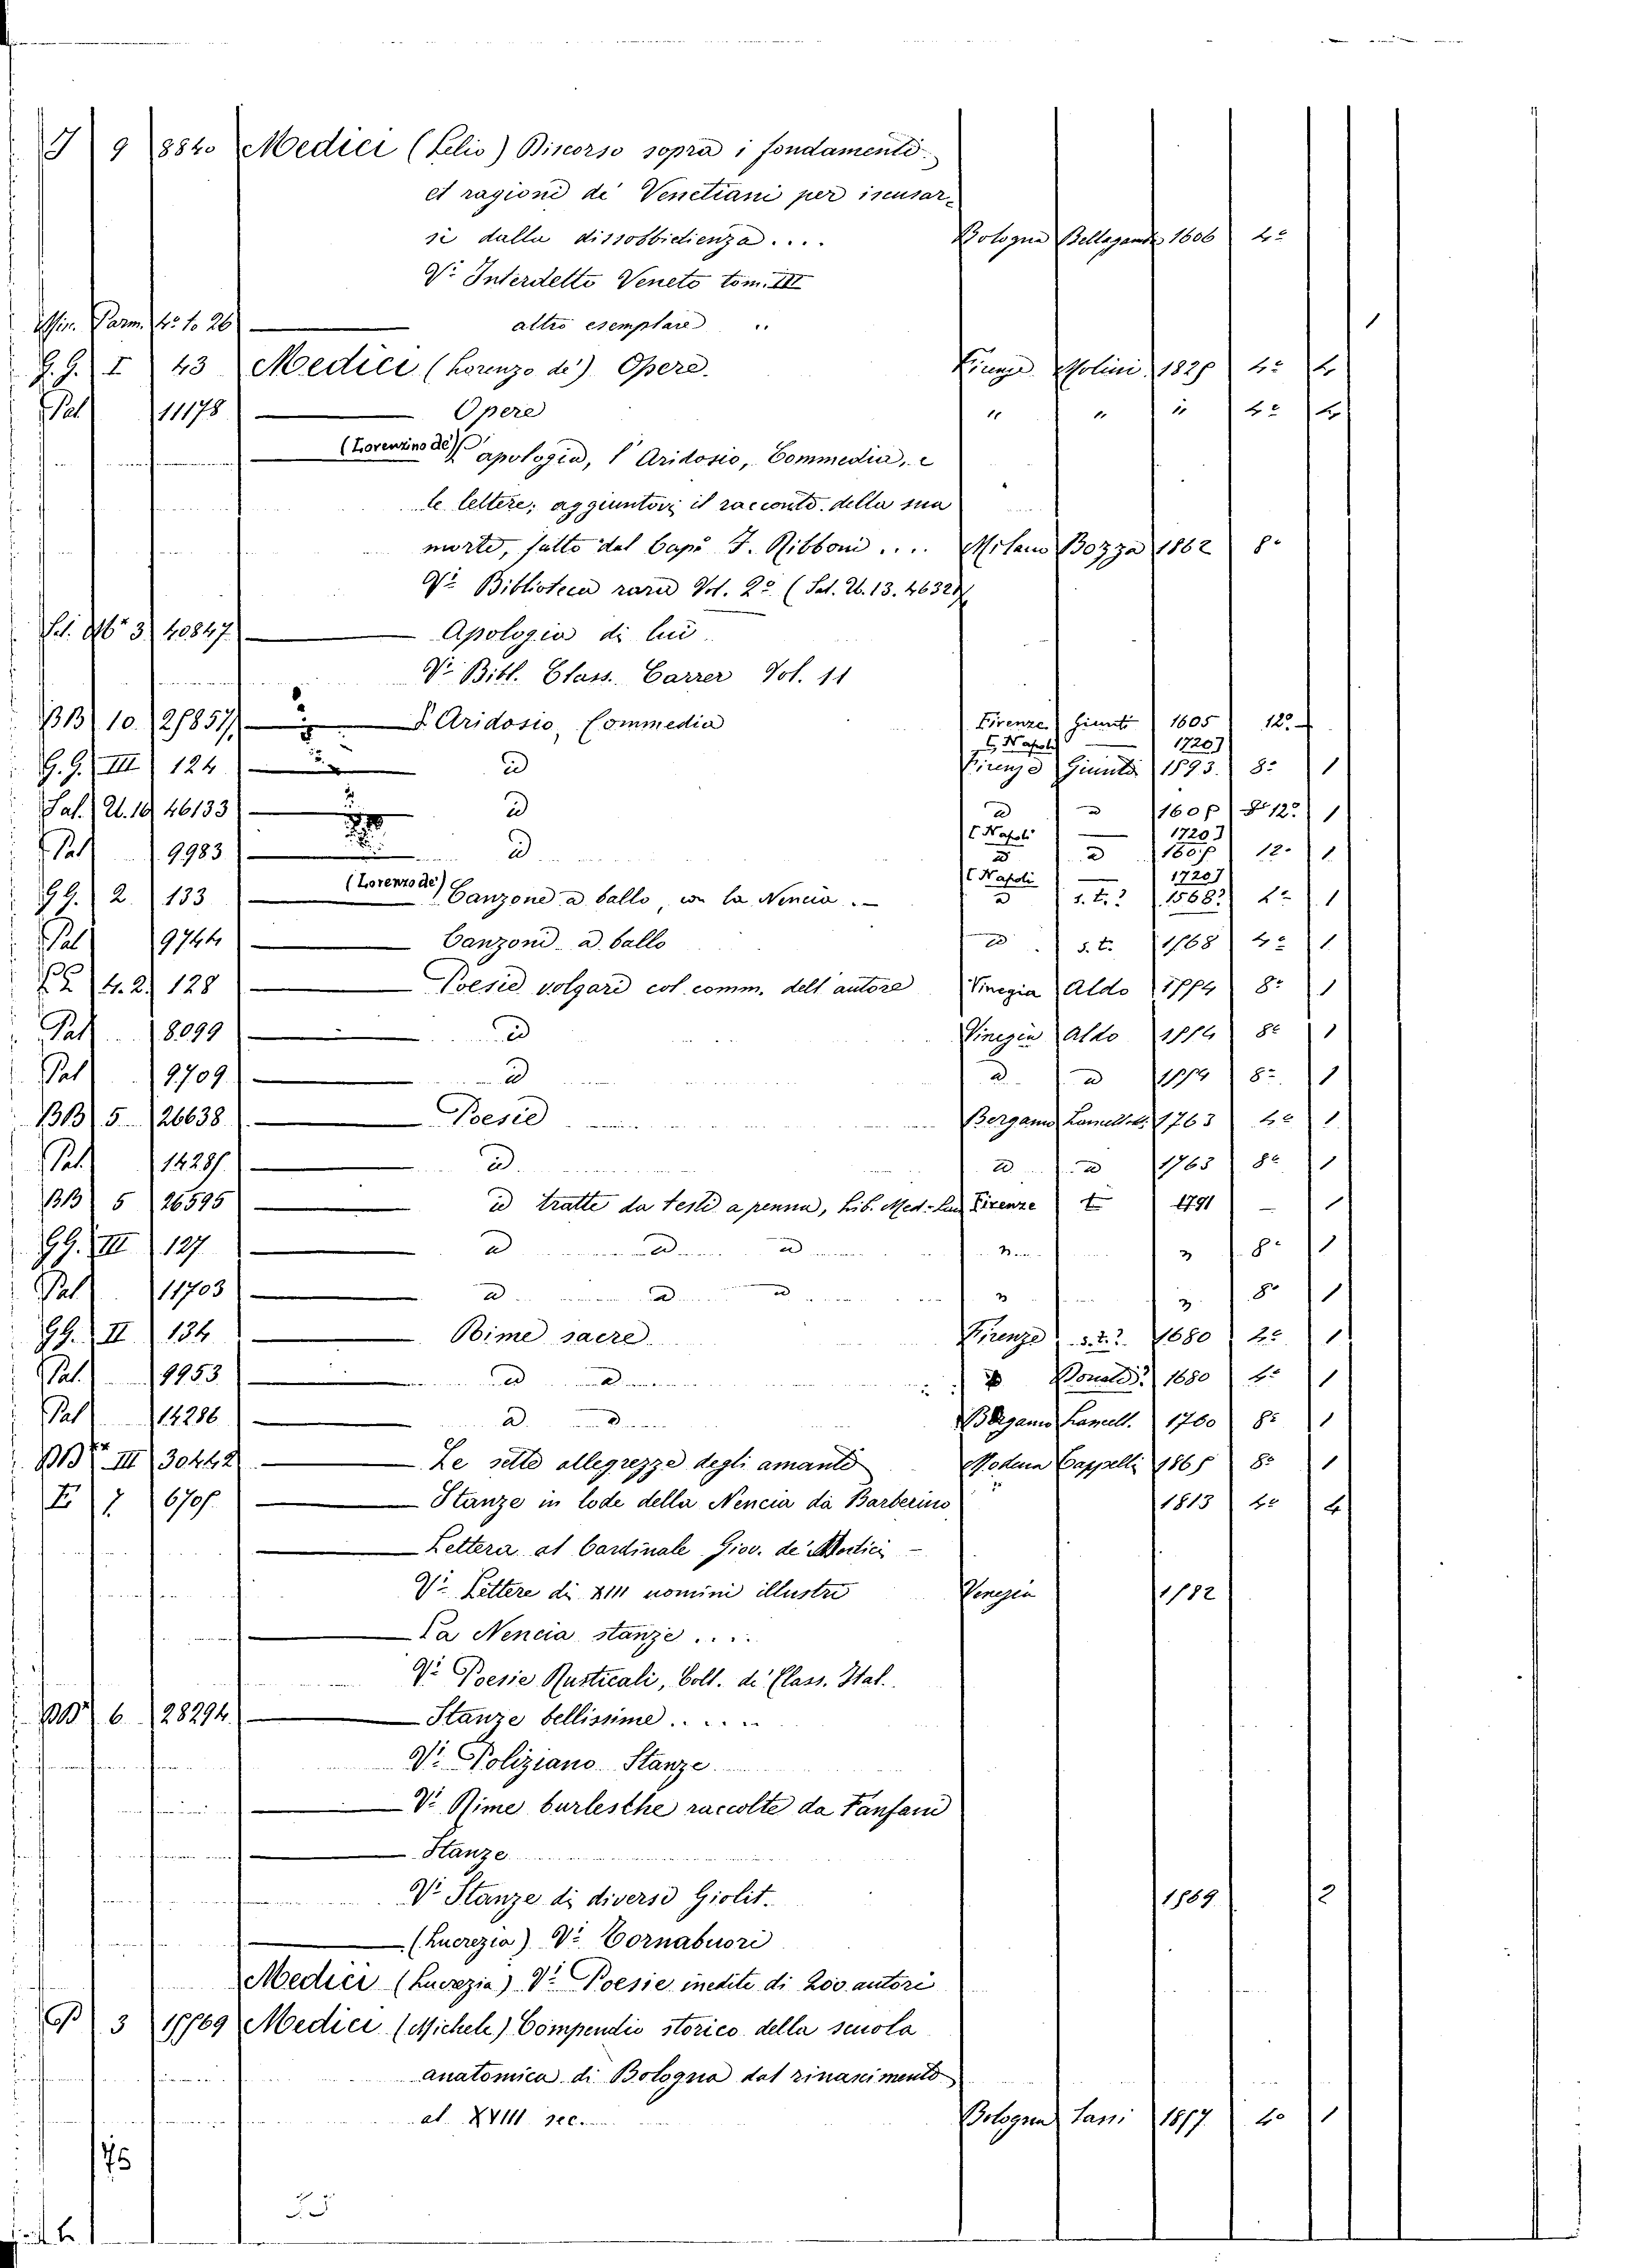 9 8840 Medici (Lelio) Discorso sopra i fondamenti
et ragioni de Venetiani per iscusar-
si dalla dissobbidienza.... Bologna Bellagamba 1606 4º
Vi Interdetto Veneto tom. III
Min. Parm. 4º to 26 altro esemplare ..  1
G.G. I 43 Medici (Lorenzo de') Opere. Firenze Molini 1825 4º 4
Pal 11178 Opere " " " 4º 4
(Lorenzino de') apologia, l'Aridosio, Commedia, e
le lettere; aggiuntovi il racconto della sua
morte, fatto dal Capº F. Bibboni.... Milano Bozza 1862 8º
Vi Biblioteca rara Vol. 2º (Sal. U. 13. 46321)
40847 Apologia di lui
Vi Bibl. Class. Carrer Vol. 11
BB 10. 25857 L'Aridosio, Commedia Firenze Giunti 1605 12º
(Napoli 1720)
G.G. III 124 id Firenze Giunti 1593. 8º 1
Sal. U. 10 46133 id id id 1605 12º 1
(Napoli 1720)
Pal 9983 id id id 1605 12º 1
(Napoli 1720)
GG. 2 133 (Lorenzo de') Canzone a ballo, con la Nencia.— id s.t.? 1568? 4º 1
Pal 9744 Canzoni a ballo id s.t. 1568 4º 1
4.2. 128 Poesie volgari col comm. dell autore Vinegia Aldo 1554 8º 1
Pal 8099 id Vinegia Aldo 1554 8º 1
Pal 9709 id id id 1554 8º 1
BB 5 26638 Poesie Bergamo Lancellotti 1763 4º 1
Pal. 14285 id id id 1763 8º 1
BB 5 26595 id tratte da testi a penna, Lib. Med. Lau Firenze 1791 — 1
GG. III 127 id id id " " 8º 1
Pal 11703 id id id " " 8º 1
GG. II 134 Rime sacre Firenze s.t.? 1680 4º 1
Pal. 9953 id id id Bonardi? 1680 4º 1
Pal 14286 id id Bergamo Lancell. 1760 8º 1
III 30442 Le sette allegrezze degli amanti Modena Cappelli 1865 8º 1
E 7 6705 Stanze in lode della Nencia da Barberino 1813 4º 4
Lettera al Cardinale Giov. de' Medici —
Vi Lettere di XIII uomini illustri Venezia 1582
La Nencia stanze....
Vi Poesie Rusticali, Coll. de' Class. Ital.
6 28294 Stanze bellissime.....
Vi Poliziano Stanze
Vi Rime burlesche raccolte da Fanfani
Stanze
Vi Stanze di diversi Giolit. 1569 2
(Lucrezia) Vi Tornabuori
Medici (Lucrezia) Vi Poesie inedite di 200 autori
3 15769 Medici (Michele) Compendio storico della scuola
anatomica di Bologna dal rinascimento
al XVIII sec. Bologna Sassi 1857 4º 1
75